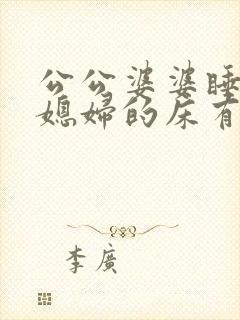 公公婆婆睡
媳妇的床有
李廣